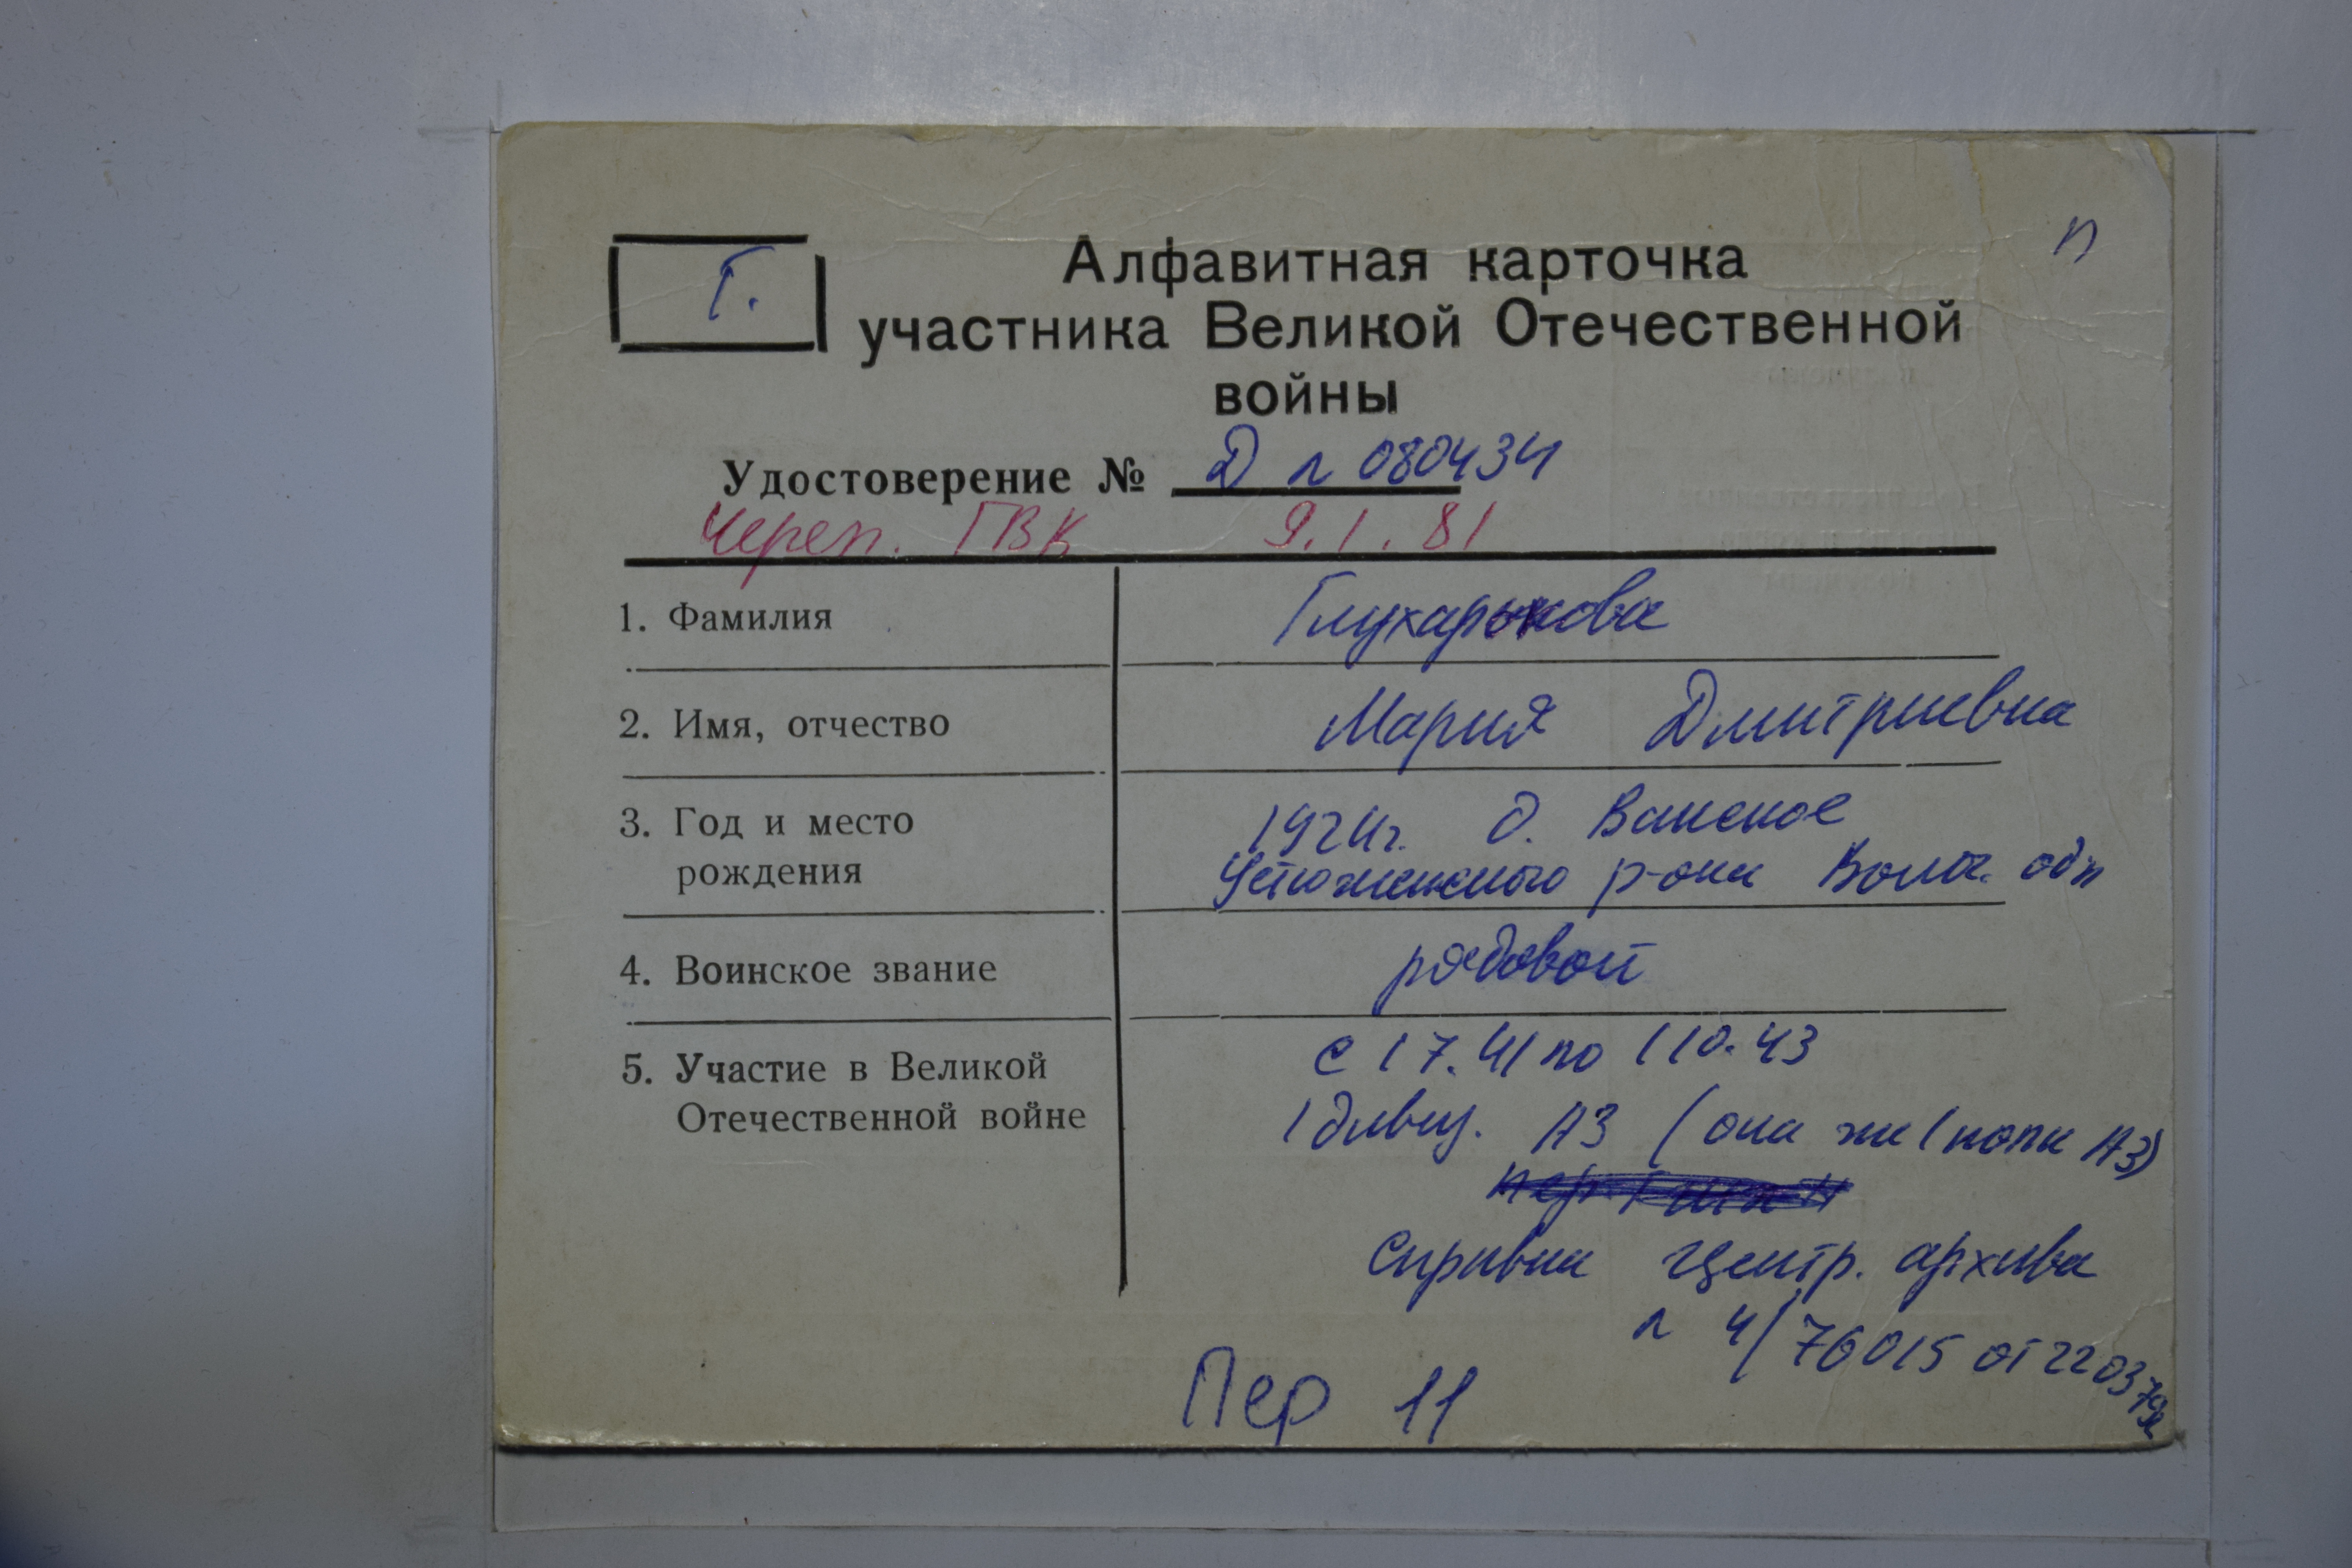 п
Г.
Алфавитная карточка
участника Великой Отечественной
войны
Удостоверение № Д № 080434
Череп. ГВК 9.1.81
1. Фамилия Глухарькова
2. Имя, отчество Мария Дмитриевна
3. Год и место 1924г. д. Ванское
рождения Устюженского р-она Волог. обл
4. Воинское звание рядовой
5. Участие в Великой с 1 7.41 по 1 10.43
Отечественной войне 1 дивиз. АЗ (она же 1 полк АЗ)
справка центр. архива
№ 4/76015 от 22 03 79г
Пер 11